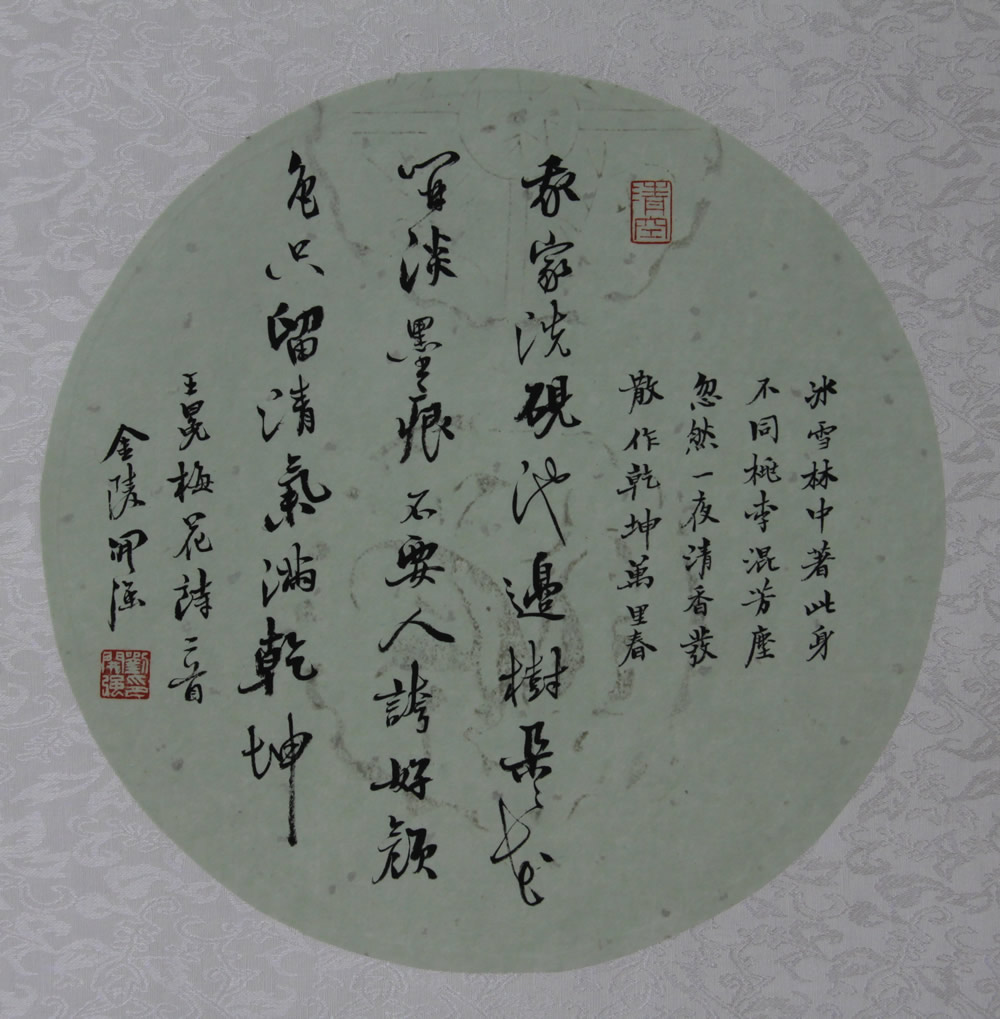 冰雪林中著此身
不同桃李混芳塵
忽然一夜清香發
散作乾坤萬里春
清空
我家洗硯池邊樹朵々花
開淡墨痕不要人誇好顏
色只留清氣滿乾坤
王冕梅花詩二首
金陵開強
劉印開強